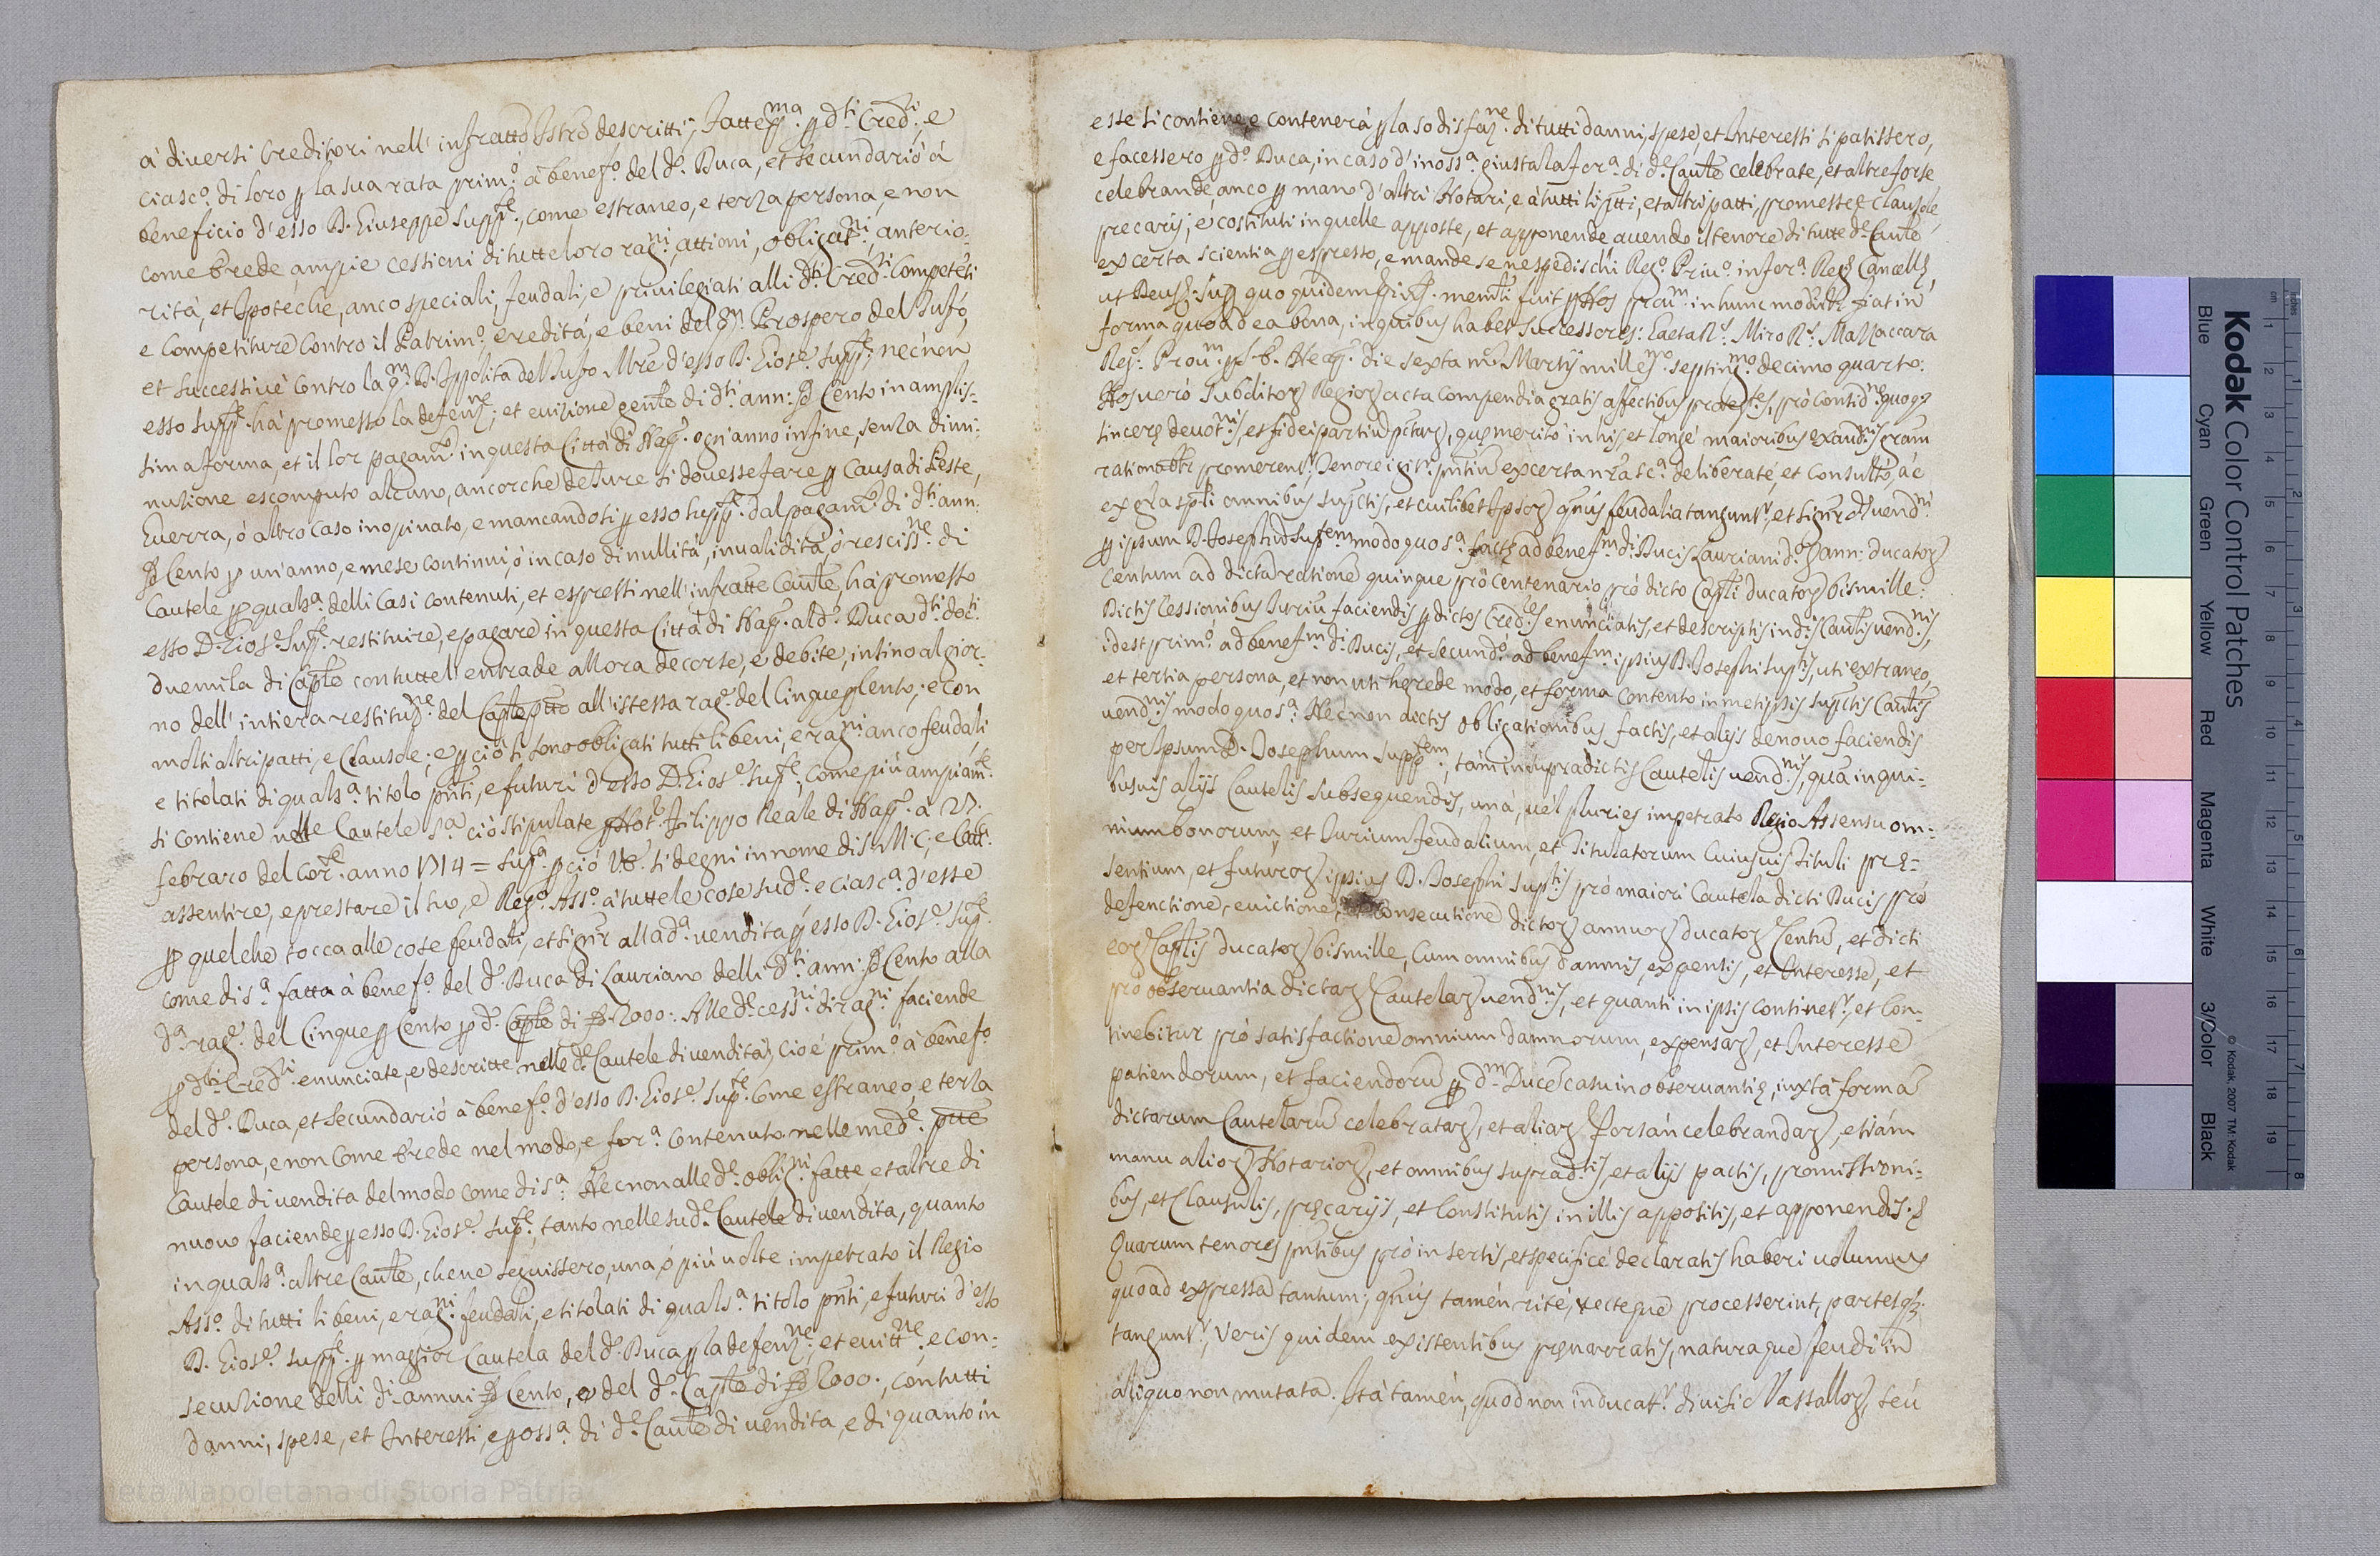 à diversi Creditori nell' infratto Istro descritti; Fatte p.ma p d.ti Cred.ri, e
ciasc.o di loro p la sua rata prim.o à benef.o del d.o Duca, et secundariò à
beneficio d'esso D. Giuseppe supp.te, come estraneo, e terza persona, e non
come herede ampie cessioni di tutte loro rag.ni, attioni, obligat.ni, anterio-
rità, et Ipoteche, anco speciali, feudali, e privilegiati alli d.ti Cred.ri Competẽti
e Competiture Contro il Patrim.o eredità, e beni del q.m Prospero del Tufo,
et successivè Contro la q.m D. Ippolita del Tufo Mre d'esso D. Gios.e supp.te, nec non
esso supp.te hà promesso la defenz.ne, et evizione di d.ti ann: D. Cento in amplis-
sima forma, et il lor pagam.to in questa Città di Nap. ogn'anno infine, senza dimi-
nutione escomputo alcuno, ancorche de Iure si dovesse fare p Causa di Peste,
Guerra, ò altro Caso inopinato, e mancandosi p esso supp.te dal pagam.to di d.ti ann:
D. Cento p un'anno, e mese continui, ò in caso di nullità, invalidità, ò resciss.ne di
Cautele p quals.a delli Casi contenuti, et espressi nell'infratte Caut.le, hà promesso
esso D. Gios.e Supp.te restituire, e pagare in questa Città di Nap. al d.o Duca d.ti doc.ti
Duemila di Cap.le con tutte l'entrade allora decorse, e debite, insino al gior-
no dell'intiera restituz.ne del Cap.le ptto all'istessa rag.e del Cinque p Cento; e con
molti altri patti, e Clausole; e p ciò si sono obligati tutti li beni, e rag.ni anco feudali,
e titolati di quals.a titolo pñti, e futuri d'esso D. Gios.e Sup.te, come più ampiam.te
si contiene nelle Cautele s.a ciò stipulate p Not.r Filippo Reale di Nap. à 27.
febraro del cor.te anno 1714 = Sup.ca p ciò V.E. si degni in nome di S.M.C. e Catt.
assentire, e prestare il suo, e Reg.o Ass.o à tutte le cose sud.e e ciasc.a d'esse
p quel che tocca alle cose feudali, et signr alla d.a vendita p esso D. Gios.e Sup.te
come di s.a fatta à benef.o del d.o Duca di Lauriano delli d.ti ann: D. Cento alla
d.a rag.e del Cinque p Cento p d.o Cap.le di D. 2000. Alle d.e cess.ni di rag.ni faciende
p d.ti Cred.ri enunciate, e descritte nelle d.e Cautele di vendita, cioè prim.o à benef.o
del d.o Duca, et secundariò à benef.o d'esso D. Gios.e Sup.te come estraneo, e terza
persona, e non come herede nel modo, e for.a contenuto nelle med.e ptte
Cautele di vendita del modo come di s.a Nec non alle d.e oblig.ni fatte et altre di
nuovo faciende p esso D. Gios.e Sup.te, tanto nelle sud.e Cautele di vendita, quanto
in quals.a altre Caut.le, che ne seguissero, una ò più volte impetrato il Regio
Ass.o di tutti li beni, e rag.ni feudali, e titolati di quals.a titolo pñti, e futuri d'esso
D. Gios.e supp.te p maggior Cautela del d.o Duca p la defenz.ne, et evitt.ne, e con-
secuzione delli d.i annui D. Cento, e del d.o Cap.le di D. 2000., con tutti
danni, spese, et Interessi, e p oss.a di d.e Caut.le di vendita, e di quanto in
esse si contiene, e contenerà p la sodisfaz.ne di tutti danni, spese, et Interessi si patissero,
e facessero p d.o Duca, in caso d'inoss.a giusta la for.a di d.e Caut.le celebrate, et altre forse
celebrande, anco p mano d'altri Notari, e à tutti li ptti, et altri patti, promesse e Clausole,
precarij, e costituti in quelle apposte, et apponende avendo il tenore di tutte d.e Caut.le
ex certa scientia p espresso, e mande se ne spedischi Reg.o Priv.o in for.a Reg. Cancell.,
ut Deus. Sup. quo quidem fuit p Nos prov.m in hunc modum fiat in
forma quoad ea bona, in quibus habet successores: Gaeta R.s Miro R.s Mazzaccara
Reg. Prov.m p S. E. Neap. die sexta m. Martij mille.mo septing.mo decimo quarto:
Nos verò Subditor Regior acta compendia gratis affectibus pro contid.ne quoq
sincerę devot.nis, et fidei partium pctar, quę meritò in his, et longè maioribus exaud.nis gram
promerent.r Tenore igit.r pñtiũ ex certa nra sc.a deliberatè, et Consultò, ac
ex gra spli omnibus supctis, et cuilibet Ipsor quus feudalia tangunt.r et signr d.e vend.ni
p ipsum D. Josephũ Sup.tem modo quo s.a factę ad benef.m d.i Ducis Lauriani d.or ann: ducator
Centum ad dicta ratione quinque pro centenario prò dicto Cap.li ducator bismille:
Dictis Cessionibus Iuriũ faciendis p dictos Cred.res enunciatis, et descriptis in d.is Cautelis vend.nis,
idest prim.o ad benef.m d.i Ducis, et secund.o ad benef.m ipsius D. Josephi sup.tis, uti extraneo,
et tertia persona, et non uti herede modo, et forma contento in metipsis supctis Cautelis
vend.nis modo quo s.a Nec non dictis obligationibus factis, et alijs denovo faciendis
per Ipsum D. Josephum supp.tem, tàm in supradictis Cautelis vend.nis, quã in qui-
busvis alijs Cautelis subsequendis, unà, vèl pluries impetrato Regio Assensu om-
nium bonorum, et Iurium feudalium, et titulatorum Cuiusvis tituli prę-
sentium, et futuror ipsius D. Josephi sup.tis prò maiori Cautela dicti Ducis prò
defenctione, evictione, et consecutione dictor annuor ducator Centũ, et dicti
eor Cap.lis ducator bismille, Cum omnibus damnis, expensis, et Interesse, et
prò observantia dictar Cautelar vend.nis, et quanti in ipsis continet.r, et Con-
tinebitur prò satisfactione omnium damnorum, expensar, et Interesse
patiendorum, et faciendorũ p d.m Ducẽ casu inobservantię, iuxtà formã
dictarum Cautelarũ celebratar, et aliar forsàn celebrandar, etiám
manu alior Notarior, et omnibus suprad.tis, et alijs pactis, promissioni-
bus, et Clausulis, pręcarijs, et Constitutis in illis appositis, et apponendis. &
Quarum tenores pñtibus prò insertis, et specificè declaratis haberi volumus
quoad expressa tantum; quus tamèn ritè, recteque processerint, partesq
tangunt.r, Veris quidem existentibus pręnarratis, naturaque feudi in
aliquo non mutata. Ità tamèn, quod non inducat.r divisio Vassallor, seù